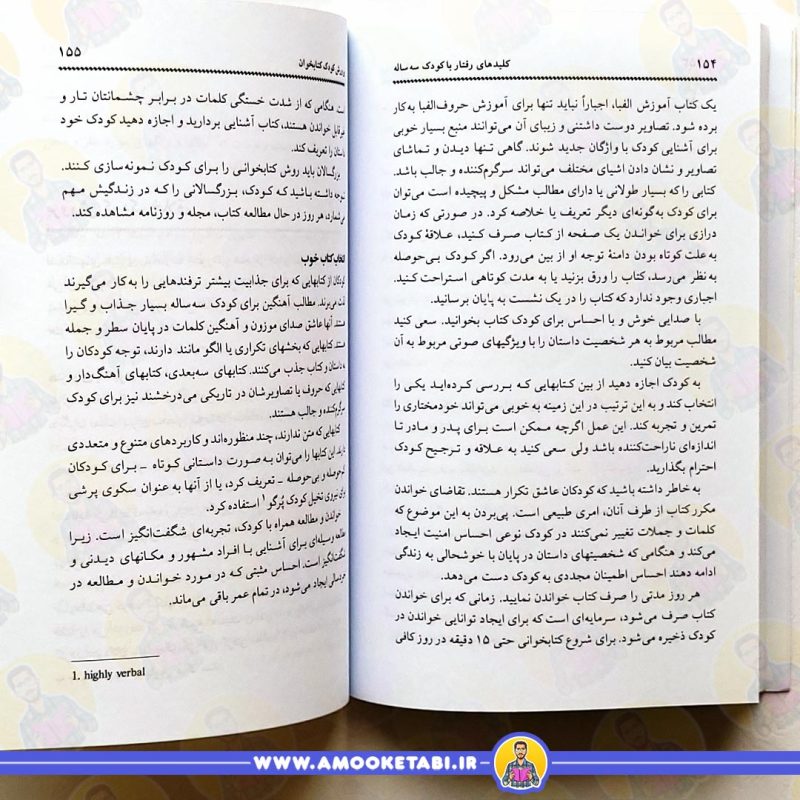 ۱۵۴
کلیدهای رفتار با کودک سه ساله
یک کتاب آموزش الفبا، اجباراً نباید تنها برای آموزش حروف‌الفبا به‌کار
برده شود. تصاویر دوست داشتنی و زیبای آن می‌توانند منبع بسیار خوبی
برای آشنایی کودک با واژگان جدید شوند. گاهی تنها دیدن و تماشای
تصاویر و نشان دادن اشیای مختلف می‌تواند سرگرم‌کننده و جالب باشد.
کتابی را که بسیار طولانی یا دارای مطالب مشکل و پیچیده است می‌توان
برای کودک به‌گونه‌ای دیگر تعریف یا خلاصه کرد. در صورتی که زمان
درازی برای خواندن یک صفحه از کتاب صرف کنید، علاقهٔ کودک
به علت کوتاه بودن دامنهٔ توجه او از بین می‌رود. اگر کودک بی‌حوصله
به نظر می‌رسد، کتاب را ورق بزنید یا به مدت کوتاهی استراحت کنید.
اجباری وجود ندارد که کتاب را در یک نشست به پایان برسانید.
با صدایی خوش و با احساس برای کودک کتاب بخوانید. سعی کنید
مطالب مربوط به هر شخصیت داستان را با ویژگیهای صوتی مربوط به آن
شخصیت بیان کنید.
به کودک اجازه دهید از بین کتابهایی که بررسی کرده‌اید یکی را
انتخاب کند و به این ترتیب در این زمینه به خوبی می‌تواند خودمختاری را
تمرین و تجربه کند. این عمل اگرچه ممکن است برای پدر و مادر تا
اندازه‌ای ناراحت‌کننده باشد ولی سعی کنید به علاقه و ترجیح کودک
احترام بگذارید.
به خاطر داشته باشید که کودکان عاشق تکرار هستند. تقاضای خواندن
مکرر کتاب از طرف آنان، امری طبیعی است. پی‌بردن به این موضوع که
کلمات و جملات تغییر نمی‌کنند در کودک نوعی احساس امنیت ایجاد
می‌کند و هنگامی که شخصیتهای داستان در پایان با خوشحالی به زندگی
ادامه دهند احساس اطمینان مجددی به کودک دست می‌دهد.
هر روز مدتی را صرف کتاب خواندن نمایید. زمانی که برای خواندن
کتاب صرف می‌شود، سرمایه‌ای است که برای ایجاد توانایی خواندن در
کودک ذخیره می‌شود. برای شروع کتابخوانی حتی ۱۵ دقیقه در روز کافی
کودک کتابخوان
۱۵۵
است. هنگامی که از شدت خستگی کلمات در برابر چشمانتان تار و
خواندن هستند، کتاب آشنایی بردارید و اجازه دهید کودک خود
داستان را تعریف کند.
بزرگسالان باید روش کتابخوانی را برای کودک نمونه‌سازی کنند.
توجه داشته باشید که کودک، بزرگسالانی را که در زندگیش مهم
می‌شمارد، هر روز در حال مطالعه کتاب، مجله و روزنامه مشاهده کند.
انتخاب کتاب خوب
کودکان از کتابهایی که برای جذابیت بیشتر ترفندهایی را به‌کار می‌گیرند
لذت می‌برند. مطالب آهنگین برای کودک سه‌ساله بسیار جذاب و گیرا
هستند. آنها عاشق صدای موزون و آهنگین کلمات در پایان سطر و جمله
هستند. کتابهایی که بخشهای تکراری یا الگو مانند دارند، توجه کودکان را
به داستان و کتاب جذب می‌کنند. کتابهای سه‌بعدی، کتابهای آهنگ‌دار و
کتابهایی که حروف یا تصاویرشان در تاریکی می‌درخشند نیز برای کودک
سرگرم‌کننده و جالب هستند.
کتابهایی که متن ندارند، چند منظوره‌اند و کاربردهای متنوع و متعددی
دارند. این کتابها را می‌توان به صورت داستانی کوتاه – برای کودکان
کم‌حوصله و بی‌حوصله – تعریف کرد، یا از آنها به عنوان سکوی پرشی
برای نیروی تخیل کودک پُرگو۱ استفاده کرد.
خواندن و مطالعه همراه با کودک، تجربه‌ای شگفت‌انگیز است. زیرا
مطالعه وسیله‌ای برای آشنایی با افراد مشهور و مکانهای دیدنی و
شگفت‌انگیز است. احساس مثبتی که در مورد خواندن و مطالعه در
خردسالی ایجاد می‌شود، در تمام عمر باقی می‌ماند.
1. highly verbal
WWW.AMOOKETABI.IR